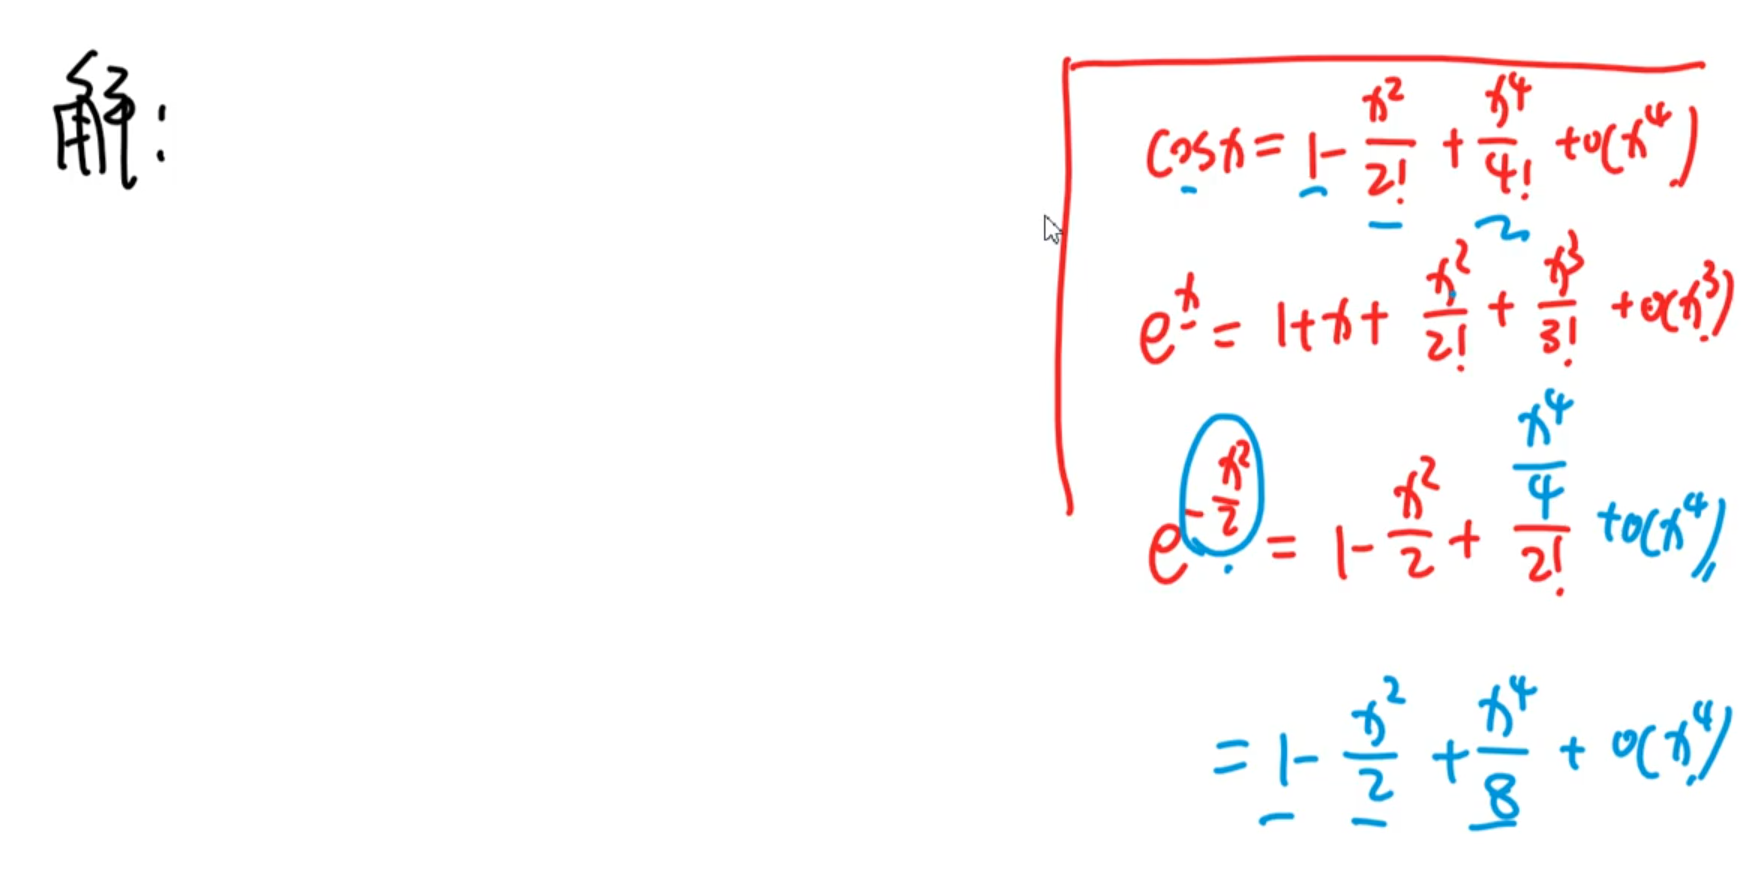 解:
cosx = 1 - x²/2! + x⁴/4! + o(x⁴)
eˣ = 1 + x + x²/2! + x³/3! + o(x³)
e^(-x²/2) = 1 - x²/2 + (x⁴/4)/2! + o(x⁴)
= 1 - x²/2 + x⁴/8 + o(x⁴)